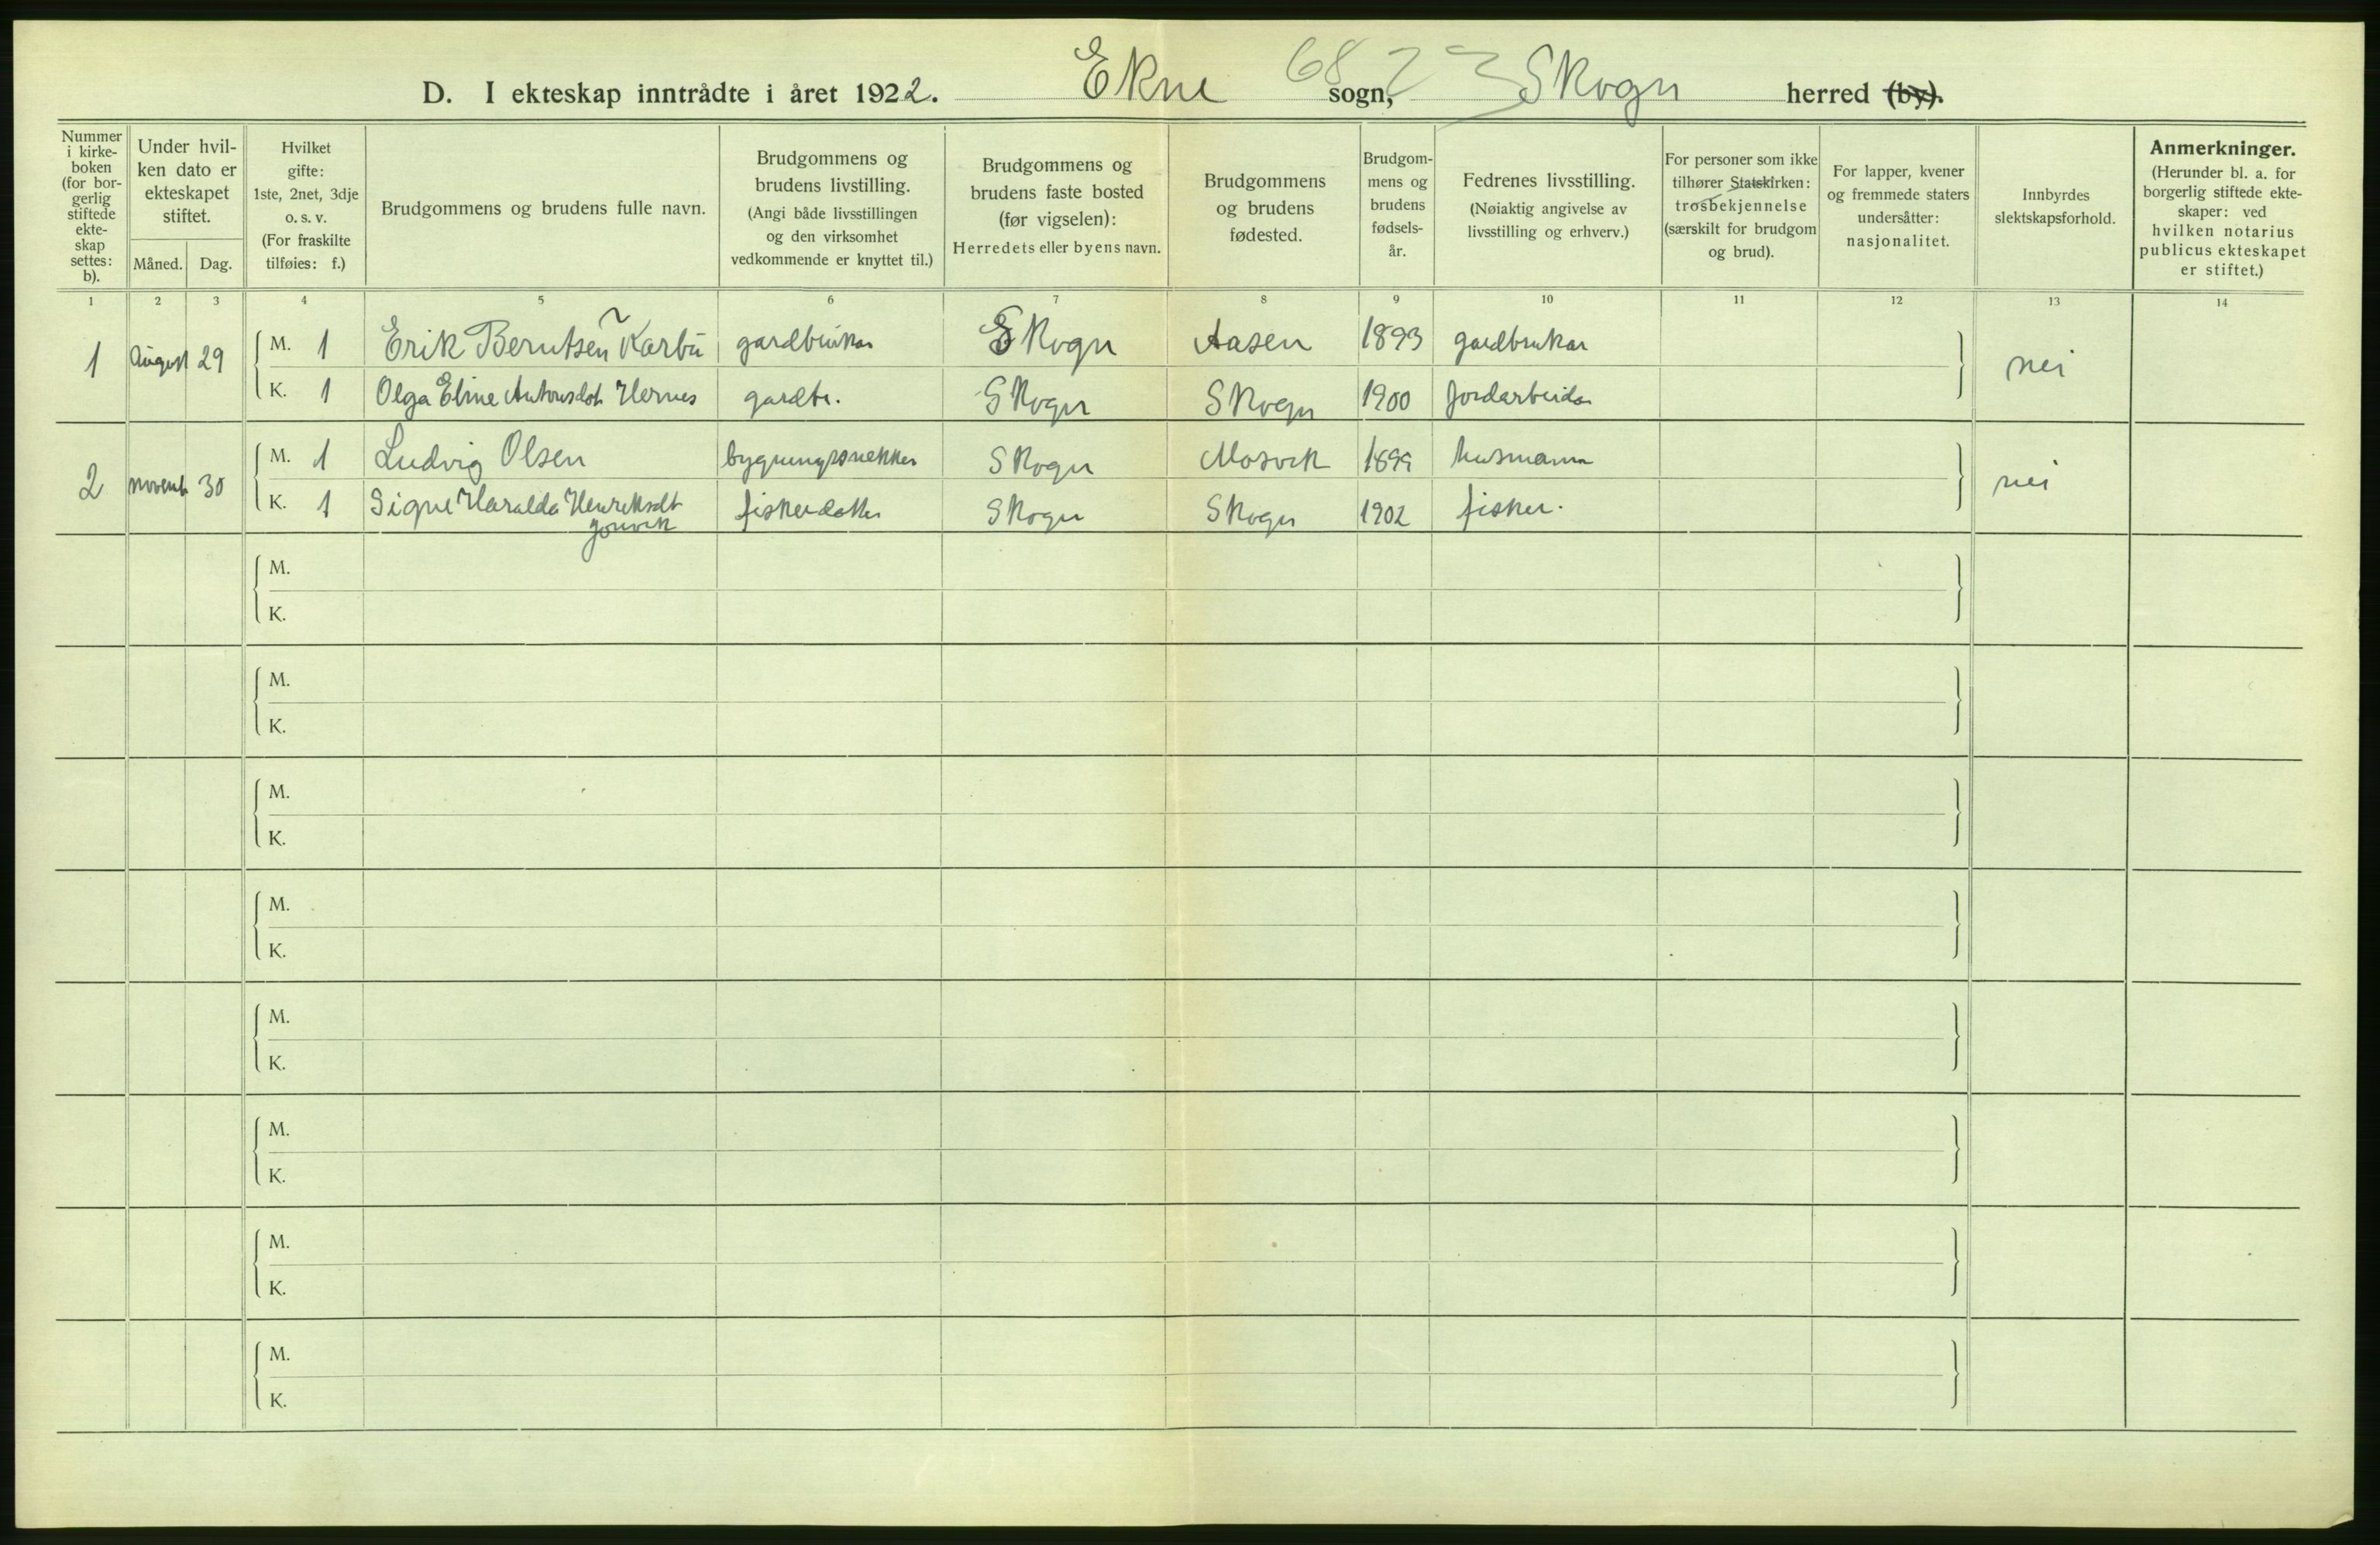 D. I ekteskap inntrådte i året 1922. Ekne sogn, Skogn herred (by).
6823
Nummer i kirke-boken (for bor-gerlig stiftede ekte-skap settes: b).
Under hvil-ken dato er ekteskapet stiftet.
Måned. Dag.
Hvilket gifte: 1ste, 2net, 3dje o. s. v. (For fraskilte tilføies: f.)
Brudgommens og brudens fulle navn.
Brudgommens og brudens livstilling. (Angi både livsstillingen og den virksomhet vedkommende er knyttet til.)
Brudgommens og brudens faste bosted (før vigselen): Herredets eller byens navn.
Brudgommens og brudens fødested.
Brudgom-mens og brudens fødsels-år.
Fedrenes livsstilling. (Nøiaktig angivelse av livsstilling og erhverv.)
For personer som ikke tilhører Statskirken: trosbekjennelse (særskilt for brudgom og brud).
For lapper, kvener og fremmede staters undersåtter: nasjonalitet.
Innbyrdes slektskapsforhold.
Anmerkninger. (Herunder bl. a. for borgerlig stiftede ekte-skaper: ved hvilken notarius publicus ekteskapet er stiftet.)
1 2 3 4 5 6 7 8 9 10 11 12 13 14
1 August 29 M. 1 Erik Berntsen Karbu gardbrukar Skogn Aasen 1893 gardbrukar nei
K. 1 Olga Eline Antonsdot Hernes gardbr. Skogn Skogn 1900 Jordarbeidar
2 novemb 30 M. 1 Ludvig Olsen bygningssnekker Skogn Mosvik 1899 husmann nei
K. 1 Signe Haralda Henriksdt fiskerdotter Skogn Skogn 1902 fisker.
M.
K.
M.
K.
M.
K.
M.
K.
M.
K.
M.
K.
M.
K.
M.
K.